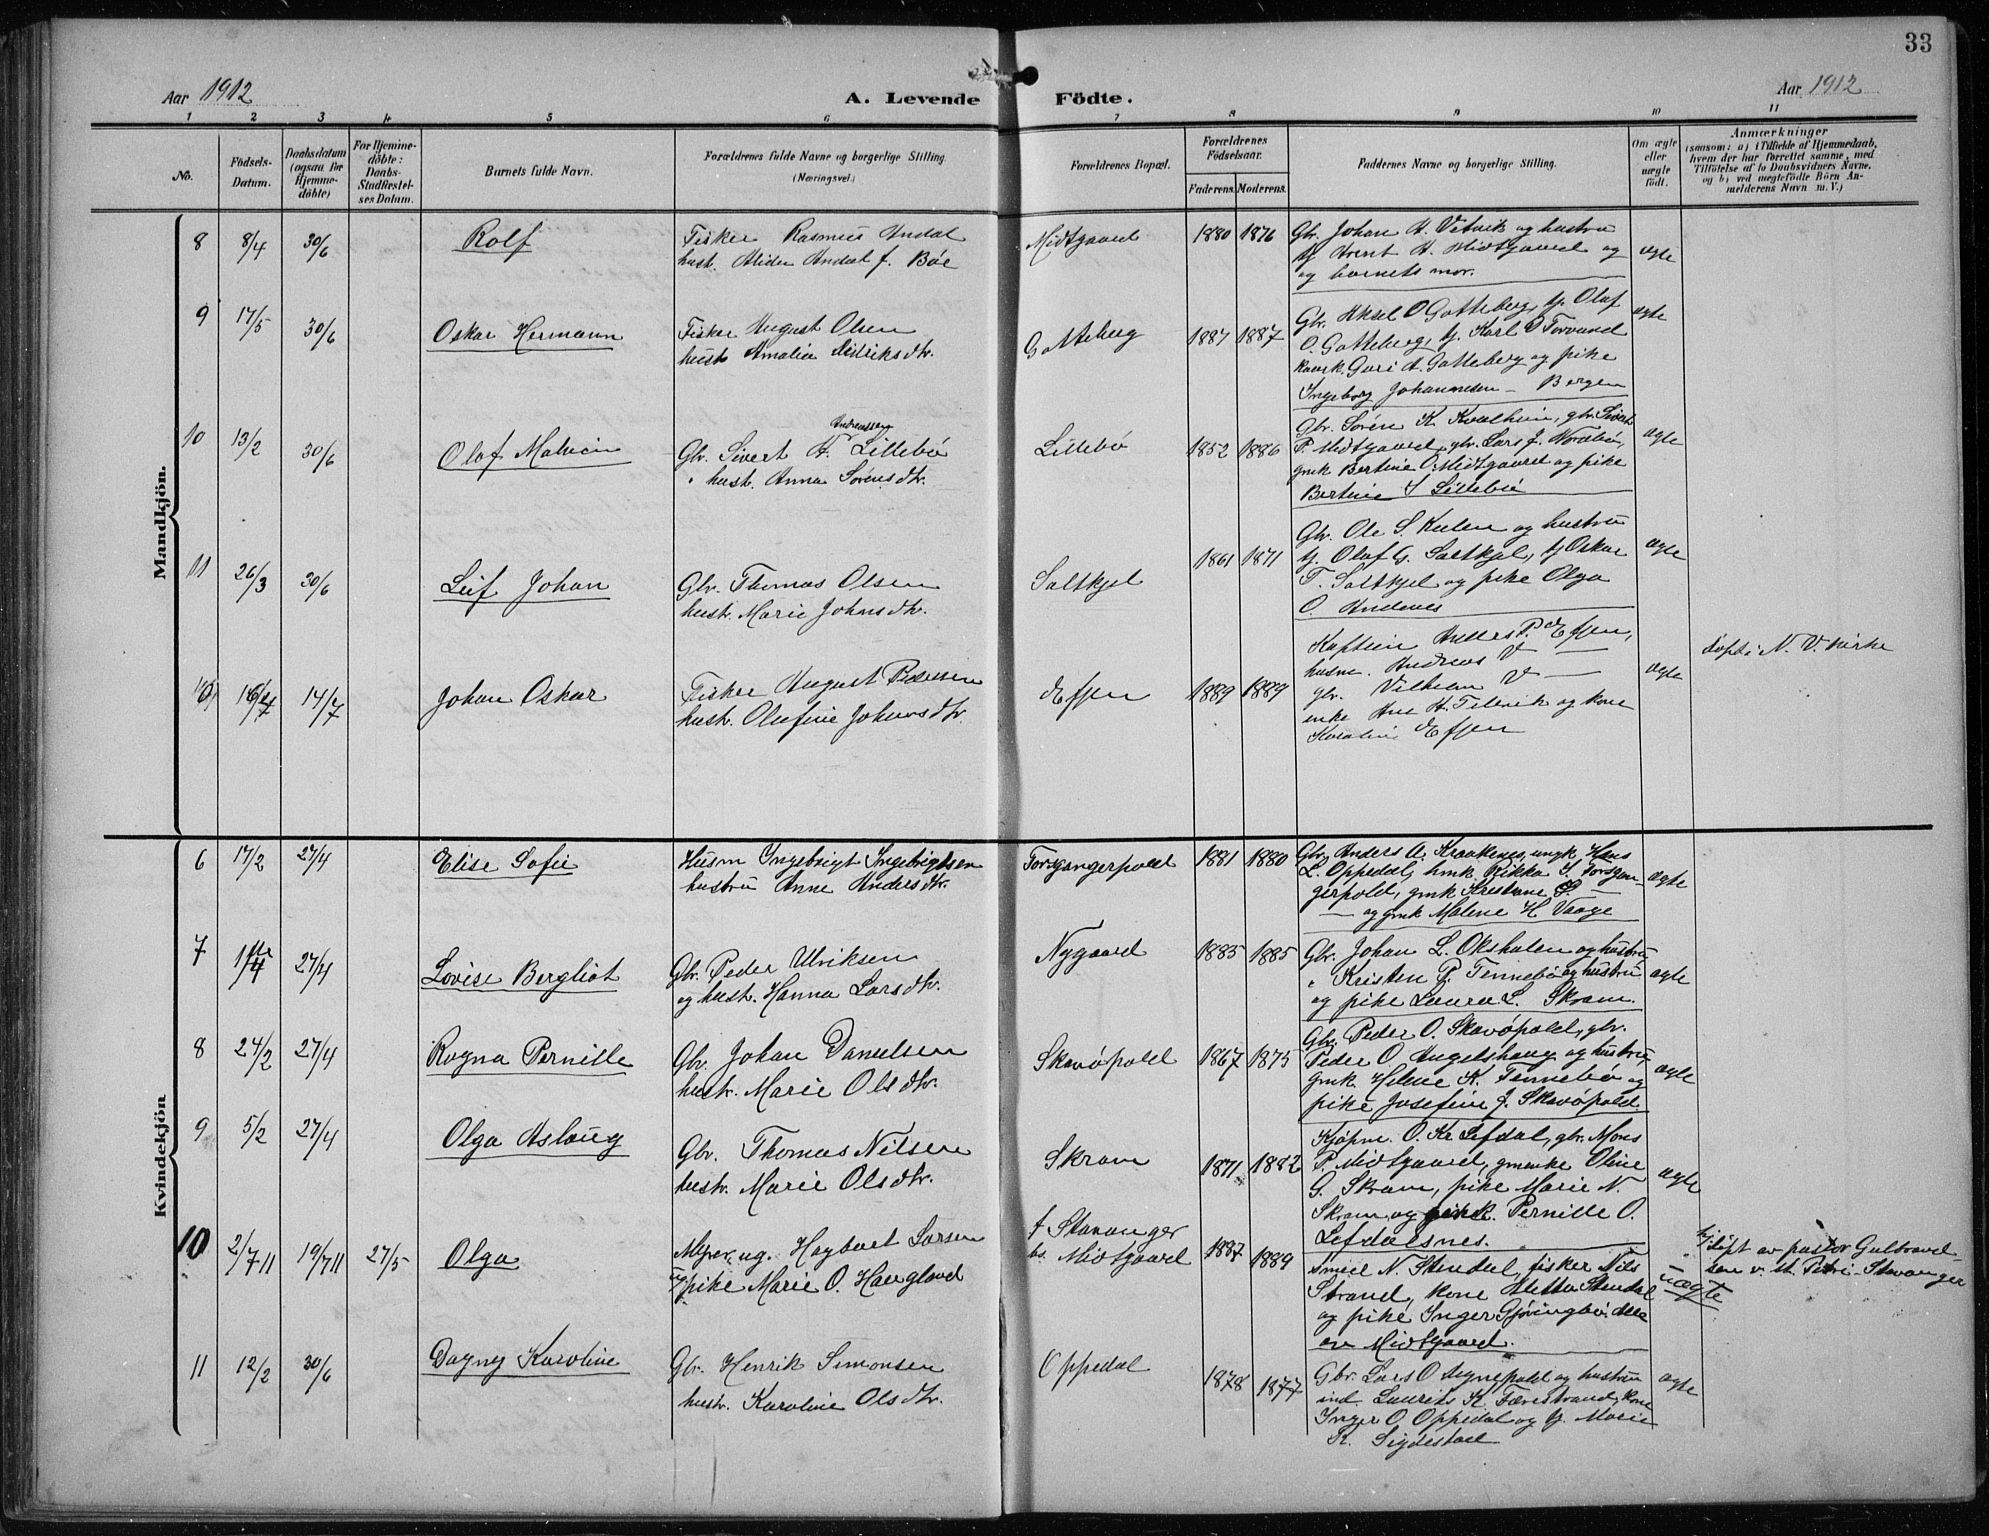 33
Aar 1912
A. Levende Födte.
Aar 1912
1 2 3 4 5 6 7 8 9 10 11
No.
Födsels-
Datum.
Daabsdatum
(ogsaa for
Hjemme-
døbte)
For Hjemme-
døbte:
Daabs-
Stadfæstel-
ses Datum.
Barnets fulde Navn.
Forældrenes fulde Navne og borgerlige Stilling.
(Næringsvei.)
Forældrenes Bopæl.
Forældrenes
Födselsaar.
Faderens. Moderens.
Faddernes Navne og borgerlige Stilling.
Om ægte
eller
uægte
födt.
Anmærkninger
(saasom: a) i Tilfælde af Hjemmedaab,
hvem der har forrettet samme, med
Tilföielse af to Daabsvidners Navne,
og b) ved uægtefödte Börn An-
melderens Navn m. V.)
Mandkjön.
8 8/4 30/6 Rolf
Fisker Rasmus Andal
hust. Alida Andal f. Böe
Midtgaard 1880 1876
Gbr. Johan A. Vetvik og hustru
tj Arent A. Midtgaard og
og barnets mor.
ægte
9 17/5 30/6 Oskar Hermann
Fisker August Olsen
hust. Amalia Didriksdtr.
Gotteberg 1887 1887
Gbr. Aksel O Gotteberg, tj. Olaf
O. Gotteberg, tj. Karl O Torvund
Guri A. Gotteberg og pike
Ingeborg Johannesen - Bergen
ægte
10 13/2 30/6 Olaf Malvin
Andreassen
Gbr. Sivert A. Lillebö
" hust. Anna Sörensdtr.
Lillebö 1852 1886
Gbr. Sören K. Kvalheim, gbr. Sivert
P. Midtgaard, gbr. Lars J. Nordbö,
gmk Bertine O. Midtgaard og pike
Bertine S Lillebö
ægte
11 26/3 30/6 Leif Johan
Gbr. Thomas Olsen
hust. Marie Johnsdtr.
Saltkjel 1861 1871
Gbr. Ole S. Kulen og hustru
tj. Olaf G. Saltkjel, tj Oskar
T. Saltkjel og pike Olga
O. Andenes
ægte
14/7 Johan Oskar
Fisker August Pedersen
hust. Olufine Johnsdtr.
Efjen 1889 1889
Kaptein Anders P. Efjen,
husm. Andreas V —
gbr. Vilhelm V —
enke Ane A. Televik og kone
Efjen
ægte
döpt i N. V. kirke
Kvindekjön
6 17/2 27/4 Elise Sofie
Husm Ingebrigt Ingebrigtsen
hustru Anne Andersdtr.
Torsgangerpold 1881 1880
Gbr. Anders A. Kraakenes, ungk. Hans
L. Oppedal, hmk. Rikka S. Forsgan-
gerpold, gmk Kristiane S. —
— og gmk Malene H. Vaage
ægte
7 27/4 Lovise Bergliot
Gbr. Peder Ulriksen
og hust. Hanna Larsdtr.
Nygaard 1883 1885
Gbr. Johan L. Okshalen og hustru
" Kristen P. Tennebö og hustru
og pike Laura L. Skram.
ægte
8 24/2 27/4 Ragna Pernille
Gbr. Johan Danielsen
hust. Marie Olsdtr.
Skavöpold 1867 1875
Gbr. Peder O. Skavöpold, gbr.
Peder O Angelshaug og hustru,
gmk. Helene K. Tennebö og
pike Josefine J. Skavöpold.
ægte
9 5/2 27/4 Olga Aslaug
Gbr. Thomas Nilsen
hust. Marie Olsdtr.
Skram 1871 1882
Kjöpm. O. Kr Lefdal, gbr. Mons
P. Midtgaard, gmenke Oline
G. Skram, pike Marie N.
Skram og Pernille O.
Lefdalsnes.
ægte
10 2/7 11 19/7 11 27/5 Olga
ug. Hagbart Larsen
og pike Marie O. Haugland
f Stavanger
bs. Midtgaard 1887 1889
N. Stendal, fisker Nils
Strand, kone Aletta Stendal
og pike Inger Gjöringbö. alle
av Midtgaard.
uægte
hj döpt av pastor Gulbrand-
sen v. St. Petri - Stavanger
11 12/2 30/6 Dagny Karoline
Gbr. Henrik Simonsen
hustr. Karoline Olsdtr.
Oppedal 1878 1877
Gbr. Lars O Degnepold og hustru
ind. Laurits K. Færestrand, kone
Inger O. Oppedal og tj. Marie
R. Sigdestad
ægte